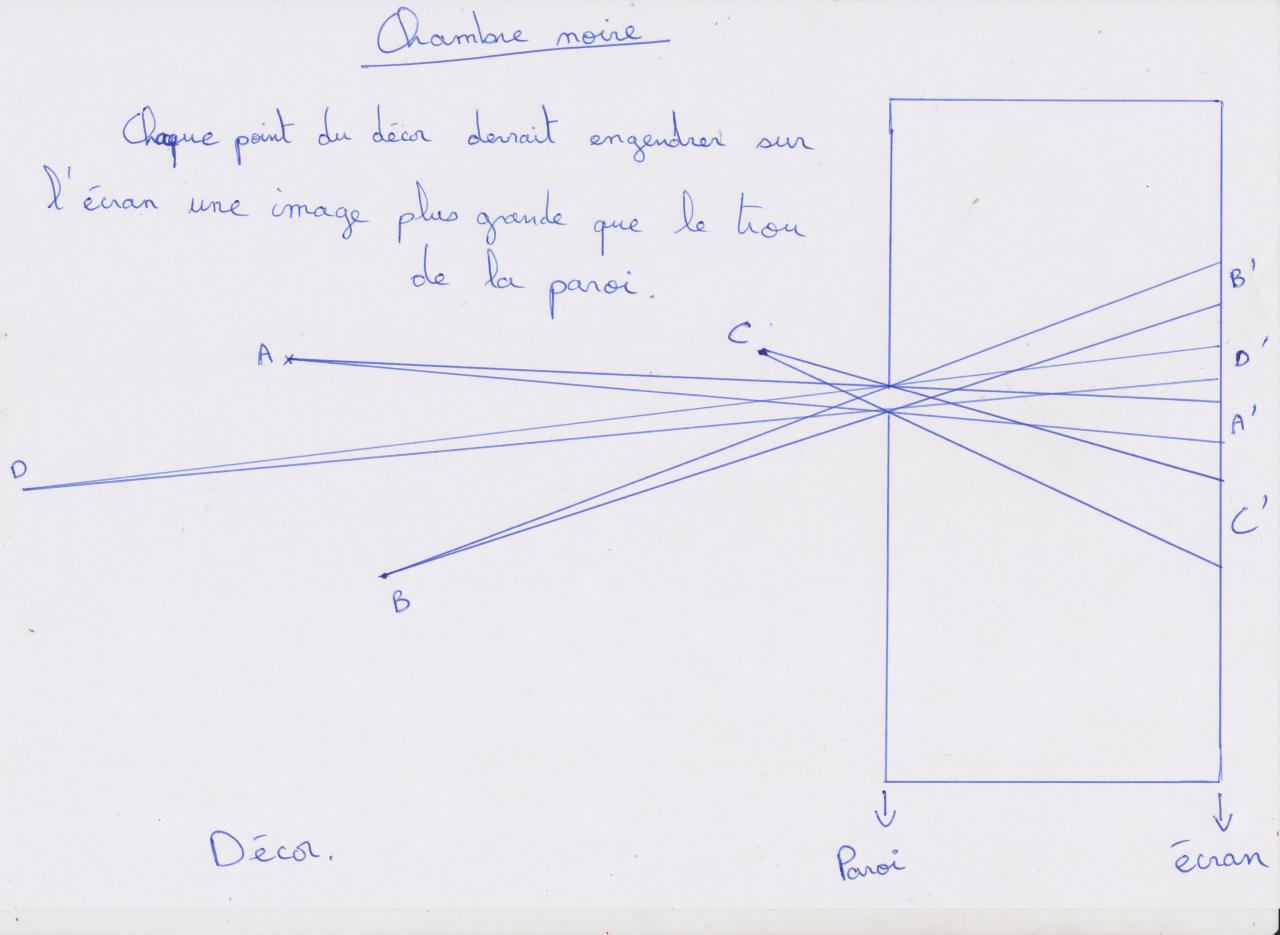 Chambre noire
Chaque point du décor devrait engendrer sur
l'écran une image plus grande que le trou
de la paroi.
A
C
B'
D'
A'
D
C'
B
Décor.
Paroi
écran